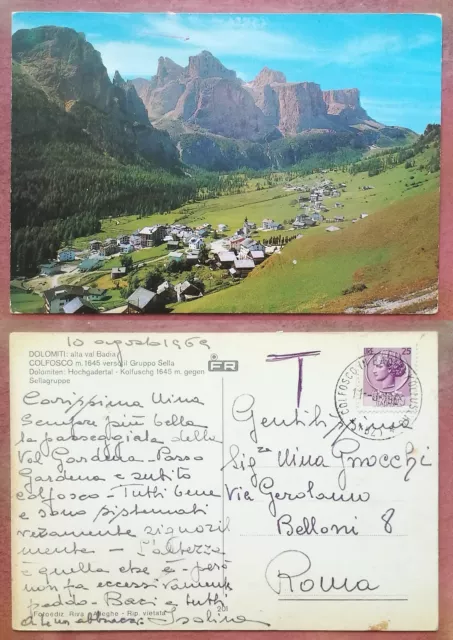 10 agosto 1969
DOLOMITI: alta val Badia
COLFOSCO m. 1645 verso il Gruppo Sella
Dolomiten: Hochgadertal - Kolfuschg 1645 m. gegen
Sellagruppe
FR
T
25
COLFOSCO
Carissima Nina
Sempre più bella
la passeggiata della
Val Gardena - Passo
Gardena e subito
Colfosco - Tutti bene
e sono sistemati
veramente signoril
mente - L'altezza
è quella che è - però
non fa eccessivamente
freddo - Baci a tutti
di un abbraccio. Isolina
Fotoediz. Riva - Alleghe - Rip. vietata
201
Gentilissima
Sig.ra Nina Gnocchi
Via Gerolamo
Belloni 8
Roma